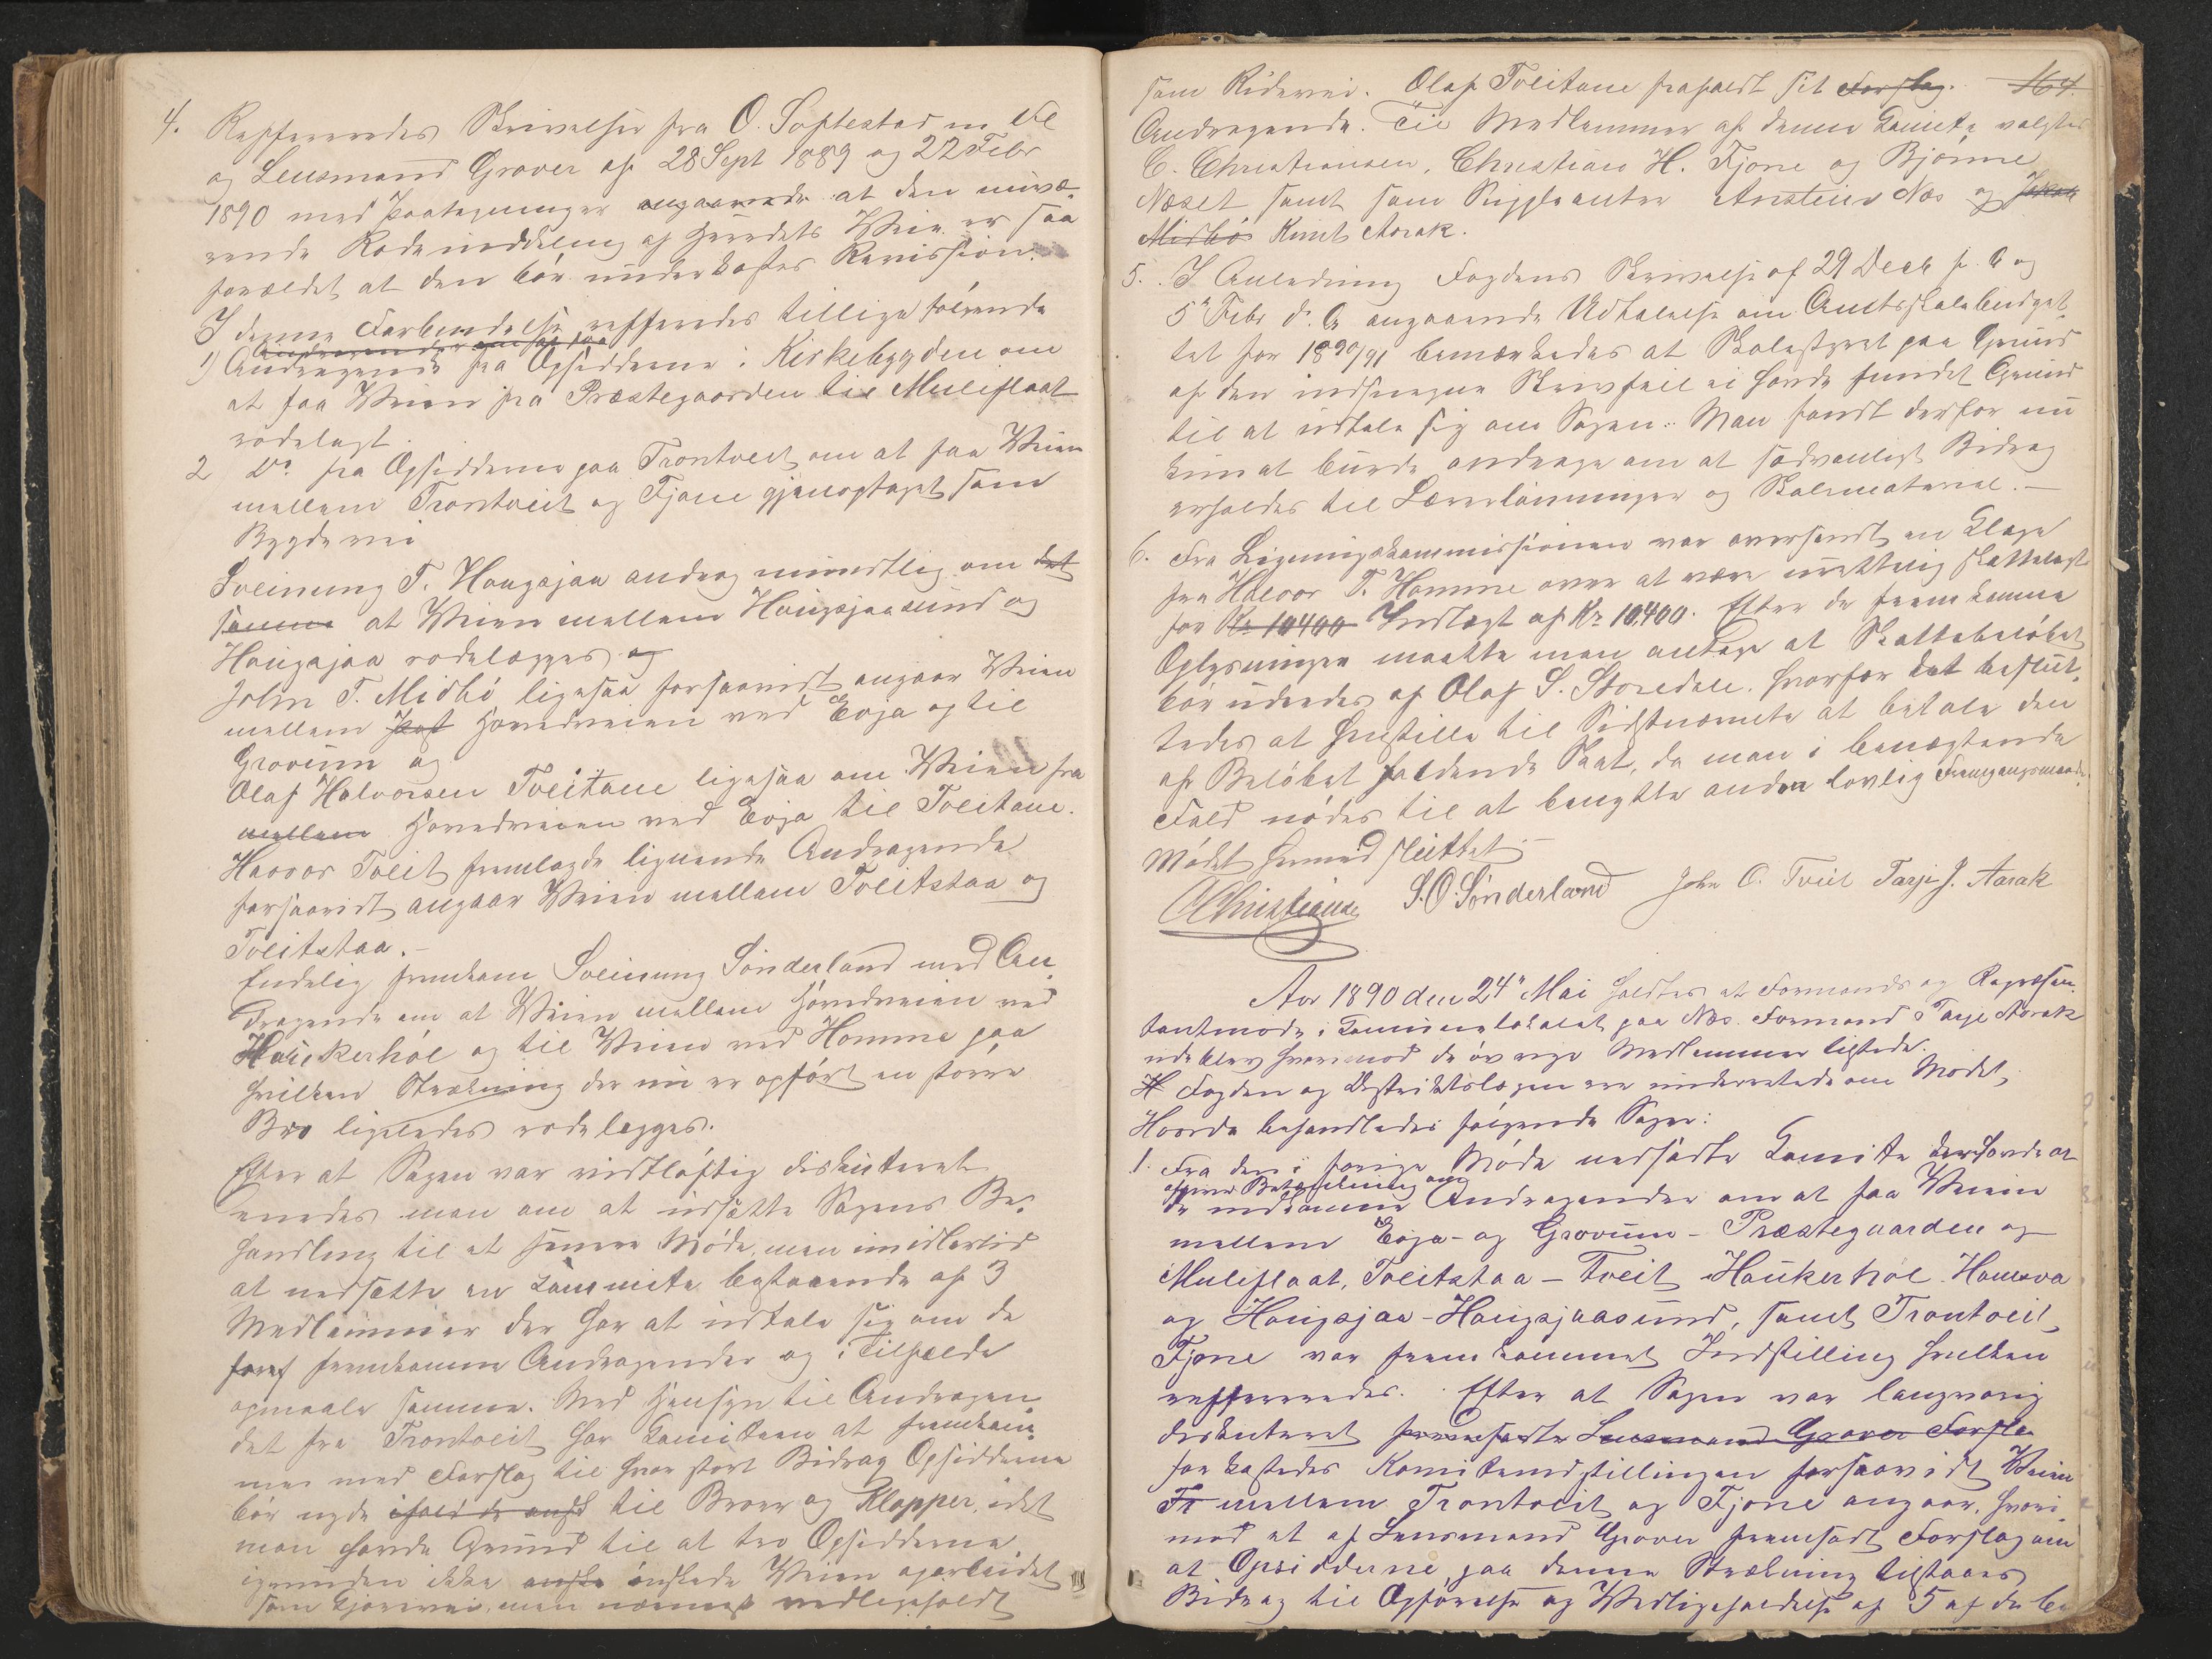 4. Reffereredes Skrivelser fra O. Loftestad m. Fl
og Lensmand Grover af 28 Sept 1889 og 22 Febr
1890 med Paategninger angaaende at den nuvæ-
rende Rodeinddeling af Herredets Veie er saa
forældet at den bör underkastes Revission.
I denne Forbindelse refferedes tillige fölgende
1) Andragende fra Opsidderne i Kirkebygden om
at faa Veien fra Præstegaarden til Muliflaat
rodelagt.
2 Do fra Opsidderne paa Trontveit om at faa Veien
mellem Trontveit og Fjone gjenoptaget som
Bygdevei
Sveinung T. Haugsjaa androg mundtlig om det
samme at Veien mellem Haugsjaasund og
Haugsjaa rodelægges og
John T. Midbö ligesaa forsaavidt angaar Veien
mellem Hovedveien ved Eoja og til
Groven og
Olaf Halvorsen Tveitane ligesaa om Veien fra
mellem Hovedveien ved Eoja til Tveitane.
Havor Tveit fremlagde lignende Andragende
forsaavidt angaar Veien mellem Tveitstaa og
Tveitstaa.–
Endelig fremkom Sveinung Sönderland med An-
dragende om at Veien mellem Hovedveien ved
Haukerhöl og til Veien ved Homme paa
hvilken Strækning der nu er opfört en större
Bro ligeledes rodelægges.
Efter at Sagen var vidtlöftig diskuteret
enedes man om at udsætte Sagens Be-
handling til et senere Möde, men imidlertid
at nedsætte en Kommite bestaaende af 3
Medlemmer der har at udtale sig om de
fremkomne Andragender og i Tilfælde
opmaale samme. Med Hensyn til Andragen-
det fra Trontveit har Komiteen at fremkom-
me med Forslag til hvor stort Bidrag Opsidderne
bör nyde til Broer og Klopper, idet
man havde Grund til at tro Opsidderne
igrunden ikke önskede Veien oparbeidet
som Kjörevei, men nærmest vedligeholdt
164.
som Ridevei. Olaf Tveitane frafaldt sit Forslag.
Andragende. Til Medlemmer af denne Komite valgtes
C. Christiansen, Christian H. Fjone og Bjönne
Næset samt som Suppleanter Anstein Næs og Johan
Midbö Knut Aarak.
5. I Anledning Fogdens Skrivelse af 29 Decb f. A og
5te Febr d. A angaaende Udtalelse om Amtsskolebudget-
tet for 1890/91 bemærkedes at Skolestyret paa Grund
af den indsnegne Skrivfeil ei havde fundet Grund
til at udtale sig om Sagen. Man fandt derfor nu
kun at burde andrage om at sædvanligt Bidrag
erholdes til Lærerlönninger og Skolemateriel.–
6. Fra Ligningskommissionen var oversendt en Klage
fra Halvor T. Homme over at være urettelig skattelagt
for Kr 10400 Indtægt af Kr 10.400. Efter de fremkomne
Oplysninger maatte man antage at Skattebelöbet
bör udredes af Olaf S. Storedale, hvorfor det beslut-
tedes at henstille til Sidstnævnte at betale den
af Belöbet faldende Skat, da man i benægtende
Fald nödes til at benytte anden lovlig Fremgangsmaade.
Mödet hermed sluttet.–
CChristiansen S.O. Sönderland John O. Tveit Tarje J. Aarak
Aar 1890 den 24de Mai holdtes et Formands og Repræsen-
tantmöde i Kommunelokalet paa Næs. Formand Tarje Aarak
udeblev hvorimod de övrige Medlemmer tilstede.
Fogden og Distriktslægen var underrettede om Mödet,
Hvorda behandledes fölgende Sager:
1. Fra den i forrige Möde nedsatte Komite der havde at
afgive Betænkning om
de indkomne Andragender om at faa Veien
mellem Eoja- og Groven – Præstegaarden og
Muliflaat, Tveitstaa – Tveit Haukerhöl Homsva
og Haugsjaa-Haugsjaasund, samt Trontveit,
Fjone var fremkommet Indstilling hvilken
reffereredes. Efter at Sagen var langvarig
diskuteret fremsatte Lensmand Grover Forsla
forkastedes Komiteindstillingen forsaavidt Veien
Fr mellem Trontveit og Fjone angaar, hvori-
mod et af Lensmand Grover fremsat Forslag om
at Opsidderne paa denne Strækning tilstaaes
Bidrag til Opförelse og Vedligeholdelse af 5 af de be